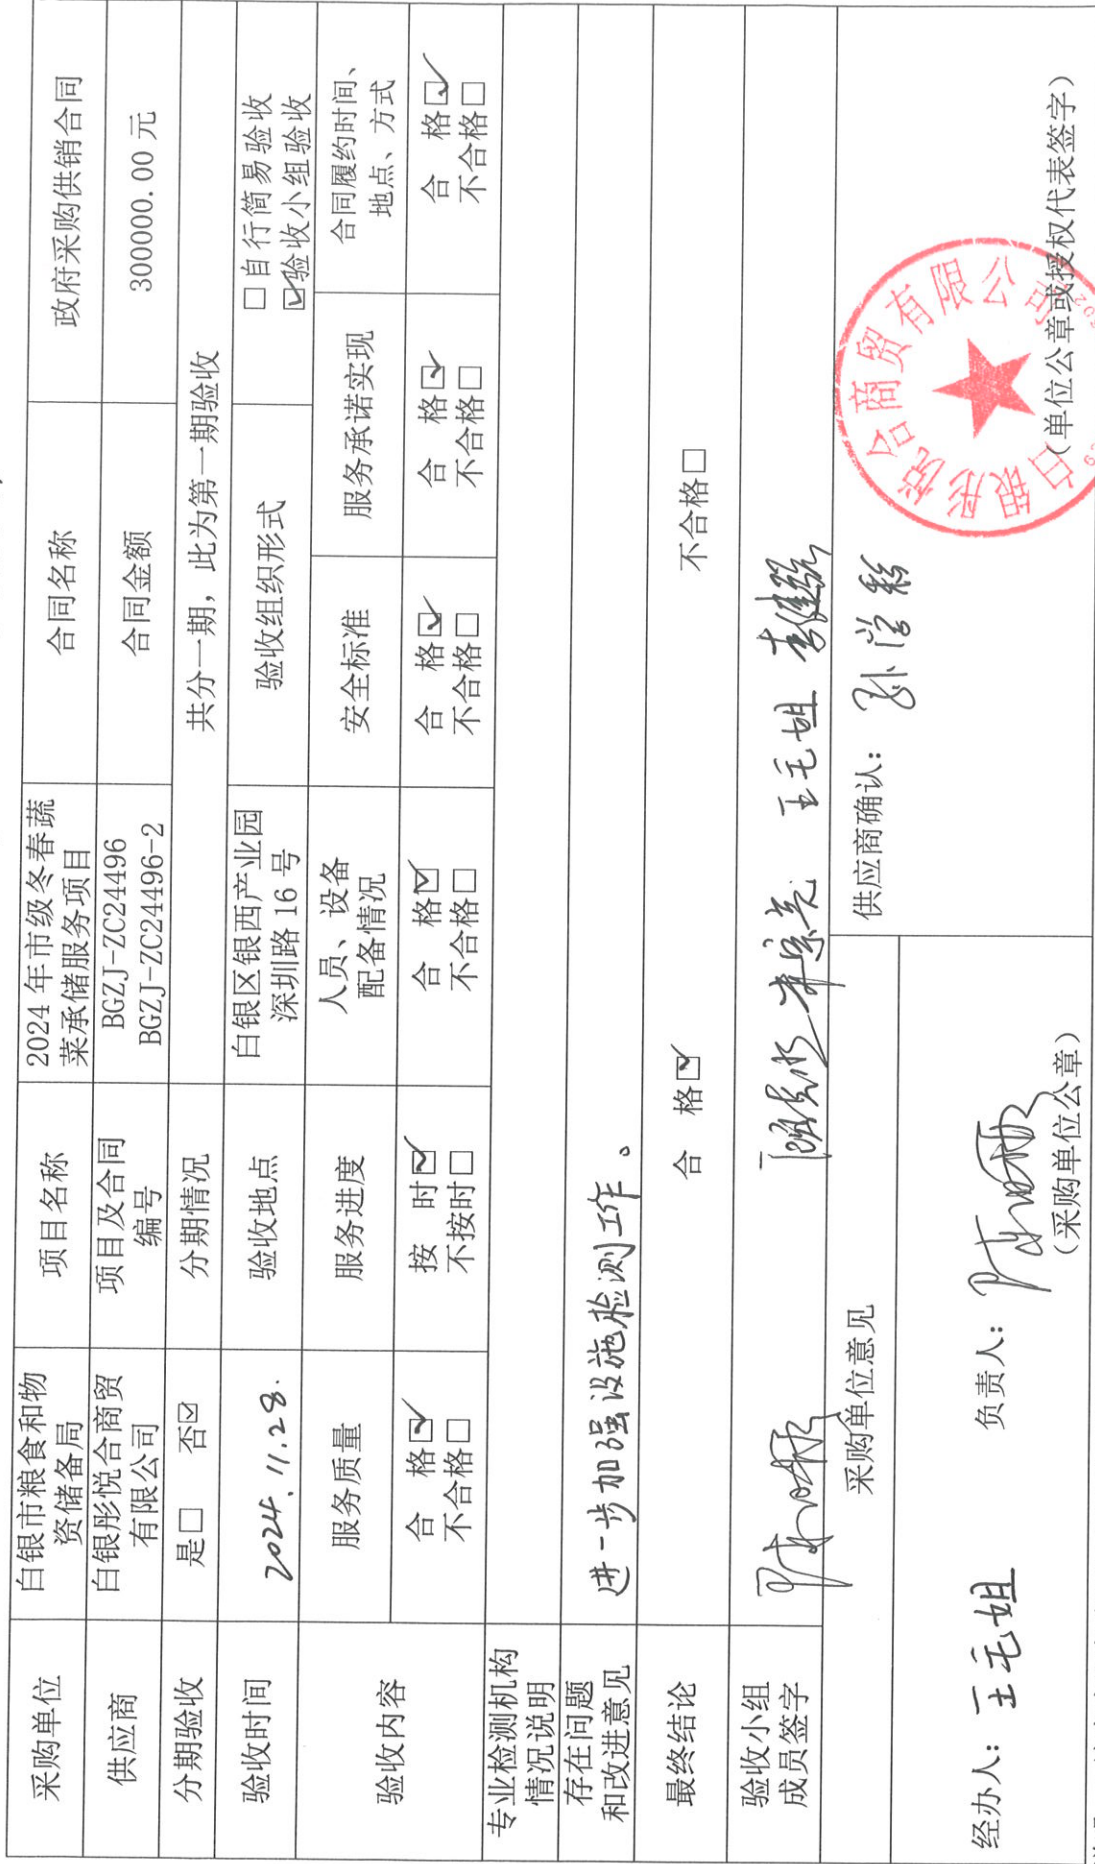 采购单位 白银市粮食和物资储备局 项目名称 2024年市级冬春蔬菜承储服务项目 合同名称 政府采购供销合同
供应商 白银彤悦合商贸有限公司 项目及合同编号 BGZJ-ZC24496 BGZJ-ZC24496-2 合同金额 300000.00元
分期验收 是□ 否☑ 分期情况 共分一期，此为第一期验收
验收时间 2024.11.28. 验收地点 白银区银西产业园深圳路16号 验收组织形式 □自行简易验收 ☑验收小组验收
验收内容 服务质量 服务进度 人员、设备配备情况 安全标准 服务承诺实现 合同履约时间、地点、方式
合 格☑ 按 时☑ 合 格☑ 合 格☑ 合 格☑ 合 格☑
不合格□ 不按时□ 不合格□ 不合格□ 不合格□ 不合格□
专业检测机构情况说明
存在问题和改进意见 进一步加强设施检测工作。
最终结论 合 格☑ 不合格□
验收小组成员签字 王毛姐
采购单位意见 供应商确认：
白银彤悦合商贸有限公司
（单位公章或授权代表签字）
经办人：王毛姐 负责人：
（采购单位公章）